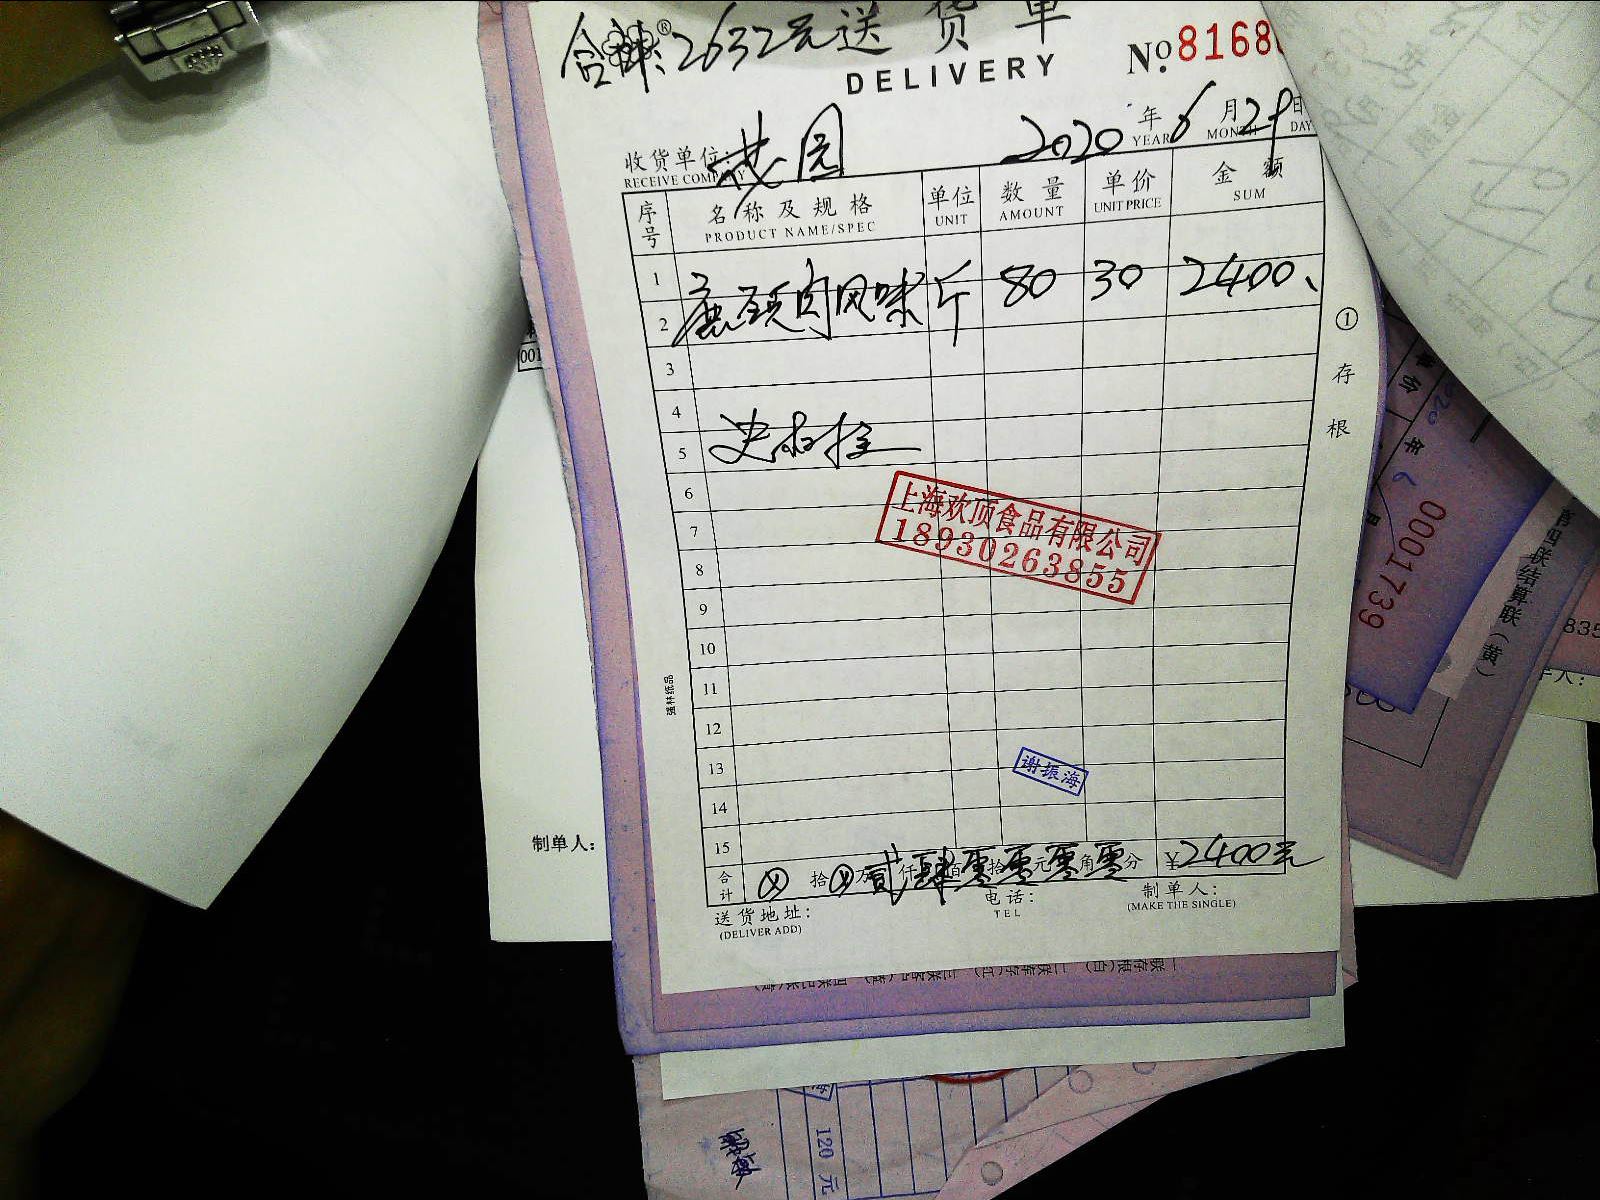 合计:2632元 送货单
DELIVERY
No.8168
收货单位: 花园
RECEIVE COMPANY
2020 年 6 月 29 日
YEAR MONTH DAY
序号 名称及规格 单位 数量 单价 金额
PRODUCT NAME/SPEC UNIT AMOUNT UNIT PRICE SUM
1 鹿颈肉风味 斤 80 30 2400、
2
3
4
5
6
上海欢顶食品有限公司
7
18930263855
8
9
10
11
12
13 谢振海
14
15
合计 ⊗ 拾 ⊗ 万 贰 仟 肆 佰 零 拾 零 元 零 角 零 分 ¥2400元
送货地址: 电话: 制单人:
(DELIVER ADD) TEL (MAKE THE SINGLE)
① 存根
强林纸品
制单人:
001
单价
2020 年 6 月
0001739
第四联结算联(黄)
835
120元